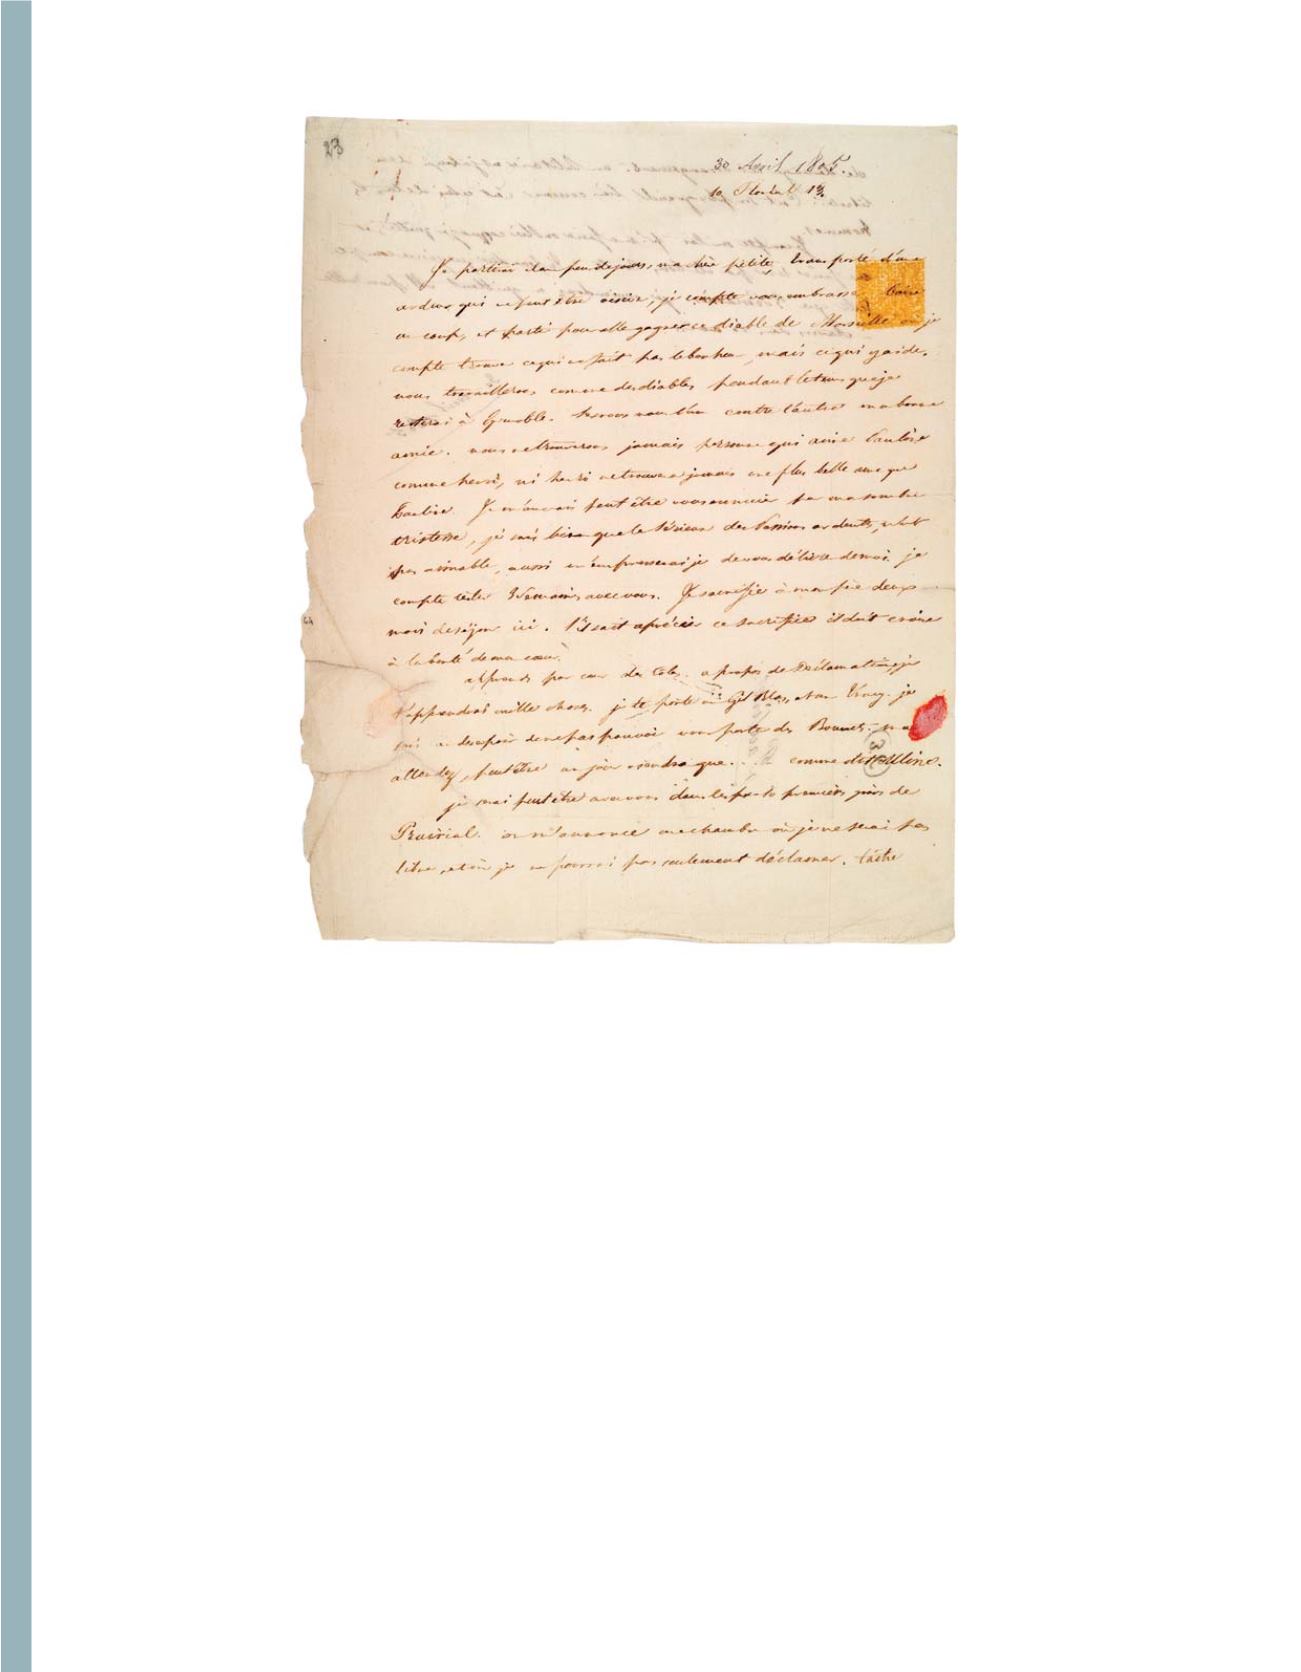 23
30 Avril 1805.
10 Floréal 13.
Je partirai dans peu de jours, ma chère petite, transporté d'une
ardeur qui ne peut être oisive, je compte vous embrasser
un coup, et partir pour aller gagner ce diable de Marseille où je
compte trouver ce qui ne fait pas le bonheur, mais ce qui y aide.
nous travaillerons comme des diables pendant le tems que je
resterai à Grenoble. Serrons nous l'un contre l'autre ma bonne
amie. nous ne trouverons jamais personne qui aime Pauline
comme henri, ni henri ne trouvera jamais une plus belle ame que
Pauline. Je m'en vais peut être vous ennuier par ma sombre
tristesse, je sais bien que le sérieux des Passions ardentes, n'est
pas aimable, aussi m'empresserai je de vous délivrer de moi. je
compte rester 3 semaines avec vous. Je sacrifie à mon père deux
mois de séjour ici. S'il sait aprécier ce sacrifice il doit croire
à la bonté de mon cœur.
apprends par cœur des rôles. a propos de Déclamation, je
t'apprendrai mille choses. je te porte un Gil Blas, et un Tracy. je
suis au desespoir de ne pas pouvoir vous porter des Bonnets. mais
attendez, peut être un jour viendra que . . . comme dit Pauline.
je serai peut être avec vous dans les 8 ou 10 premiers jours de
Prairial. on m'annonce une chambre où je ne serai pas
libre, et où je ne pourrai pas seulement déclamer. tâche